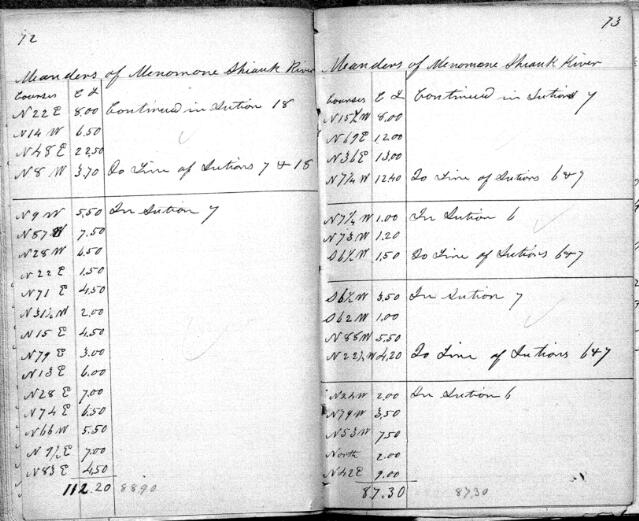 72
Meanders of Menomone Shiauk River
Courses C L
N 22 E 8.00 Continued in Section 18
N 14 W 6.50
N 48 E 22.50
N 8 W 3.70 To Line of Sections 7 & 18
N 9 W 5.50 In Section 7
N 87 W 7.50
N 28 W 6.50
N 22 E 1.50
N 71 E 4.50
N 31½ W 2.00
N 15 E 4.50
N 79 E 3.00
N 13 E 6.00
N 28 E 7.00
N 74 E 6.50
N 66 W 5.50
N 9½ E 7.00
N 83 E 4.50
112.20 8890
73
Meanders of Menomone Shiauk River
Courses C L Continued in Section 7
N 15½ W 8.00
N 69 E 12.00
N 36 E 13.00
N 7¼ W 12.40 To Line of Sections 6 & 7
N 7¼ W 1.00 In Section 6
N 73 W 1.20
S 6½ W 1.50 To Line of Sections 6 & 7
S 6½ W 3.50 In Section 7
S 62 W 1.00
N 88 W 5.50
N 22½ W 4.20 To Line of Sections 6 & 7
W 2.00 In Section 6
N 79 W 3.50
N 53 W 7.50
North 2.00
N 42 E 9.00
87.30 8730